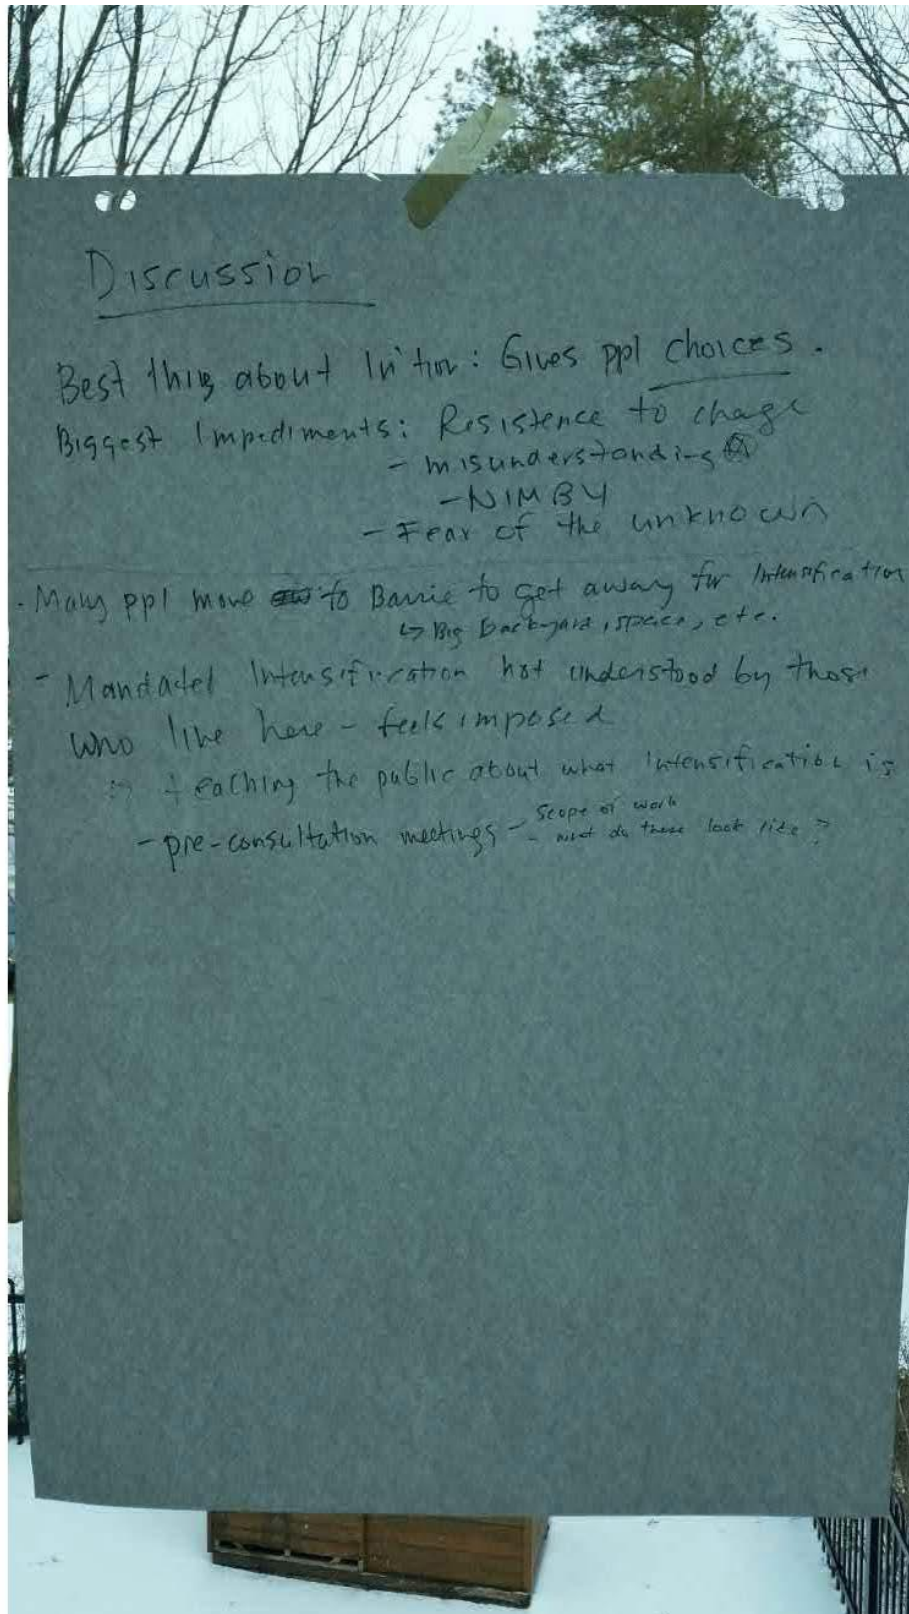 Discussion
Best thing about In'tion: Gives ppl choices.
Biggest Impediments: Resistence to change
- misunderstanding
- NIMBY
- Fear of the unknown
- Many ppl move to Barrie to get away for Intensification
↳ Big backyard, space, etc.
- Mandated Intensification not understood by those
who live here - feels imposed
teaching the public about what intensification is
- pre-consultation meetings - Scope of work
- what do these look like?